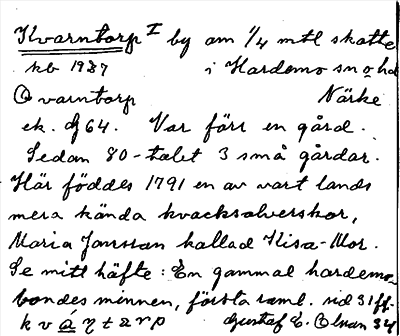 Kvarntorp I by om 1/4 mtl skatte
kb 1987 i Hardemo sn o hd
Qvarntorp Närke
ek. bl 64. Var förr en gård.
Sedan 80-talet 3 små gårdar.
Här föddes 1791 en av vart lands
mera kända kvacksalverskor,
Maria Jansson kallad Kisa-Mor.
Se mitt häfte: En gammal hardemo-
bondes minnen, första saml. sid 31 ff.
Gustaf E. Olsson 34